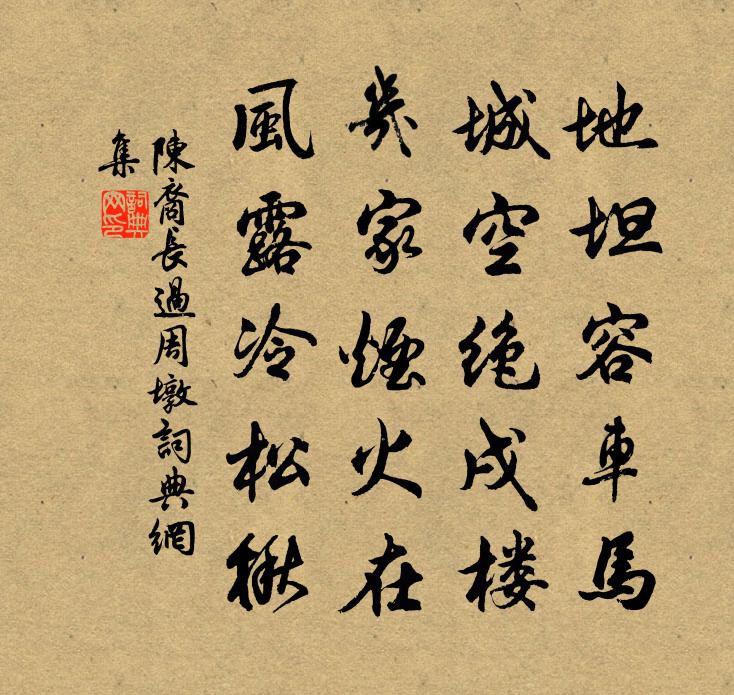 地坦容車馬
城空绝戍楼
幾家煙火在
風露冷松楸
陳裔長過周墩詞典網
集
詞典
网印